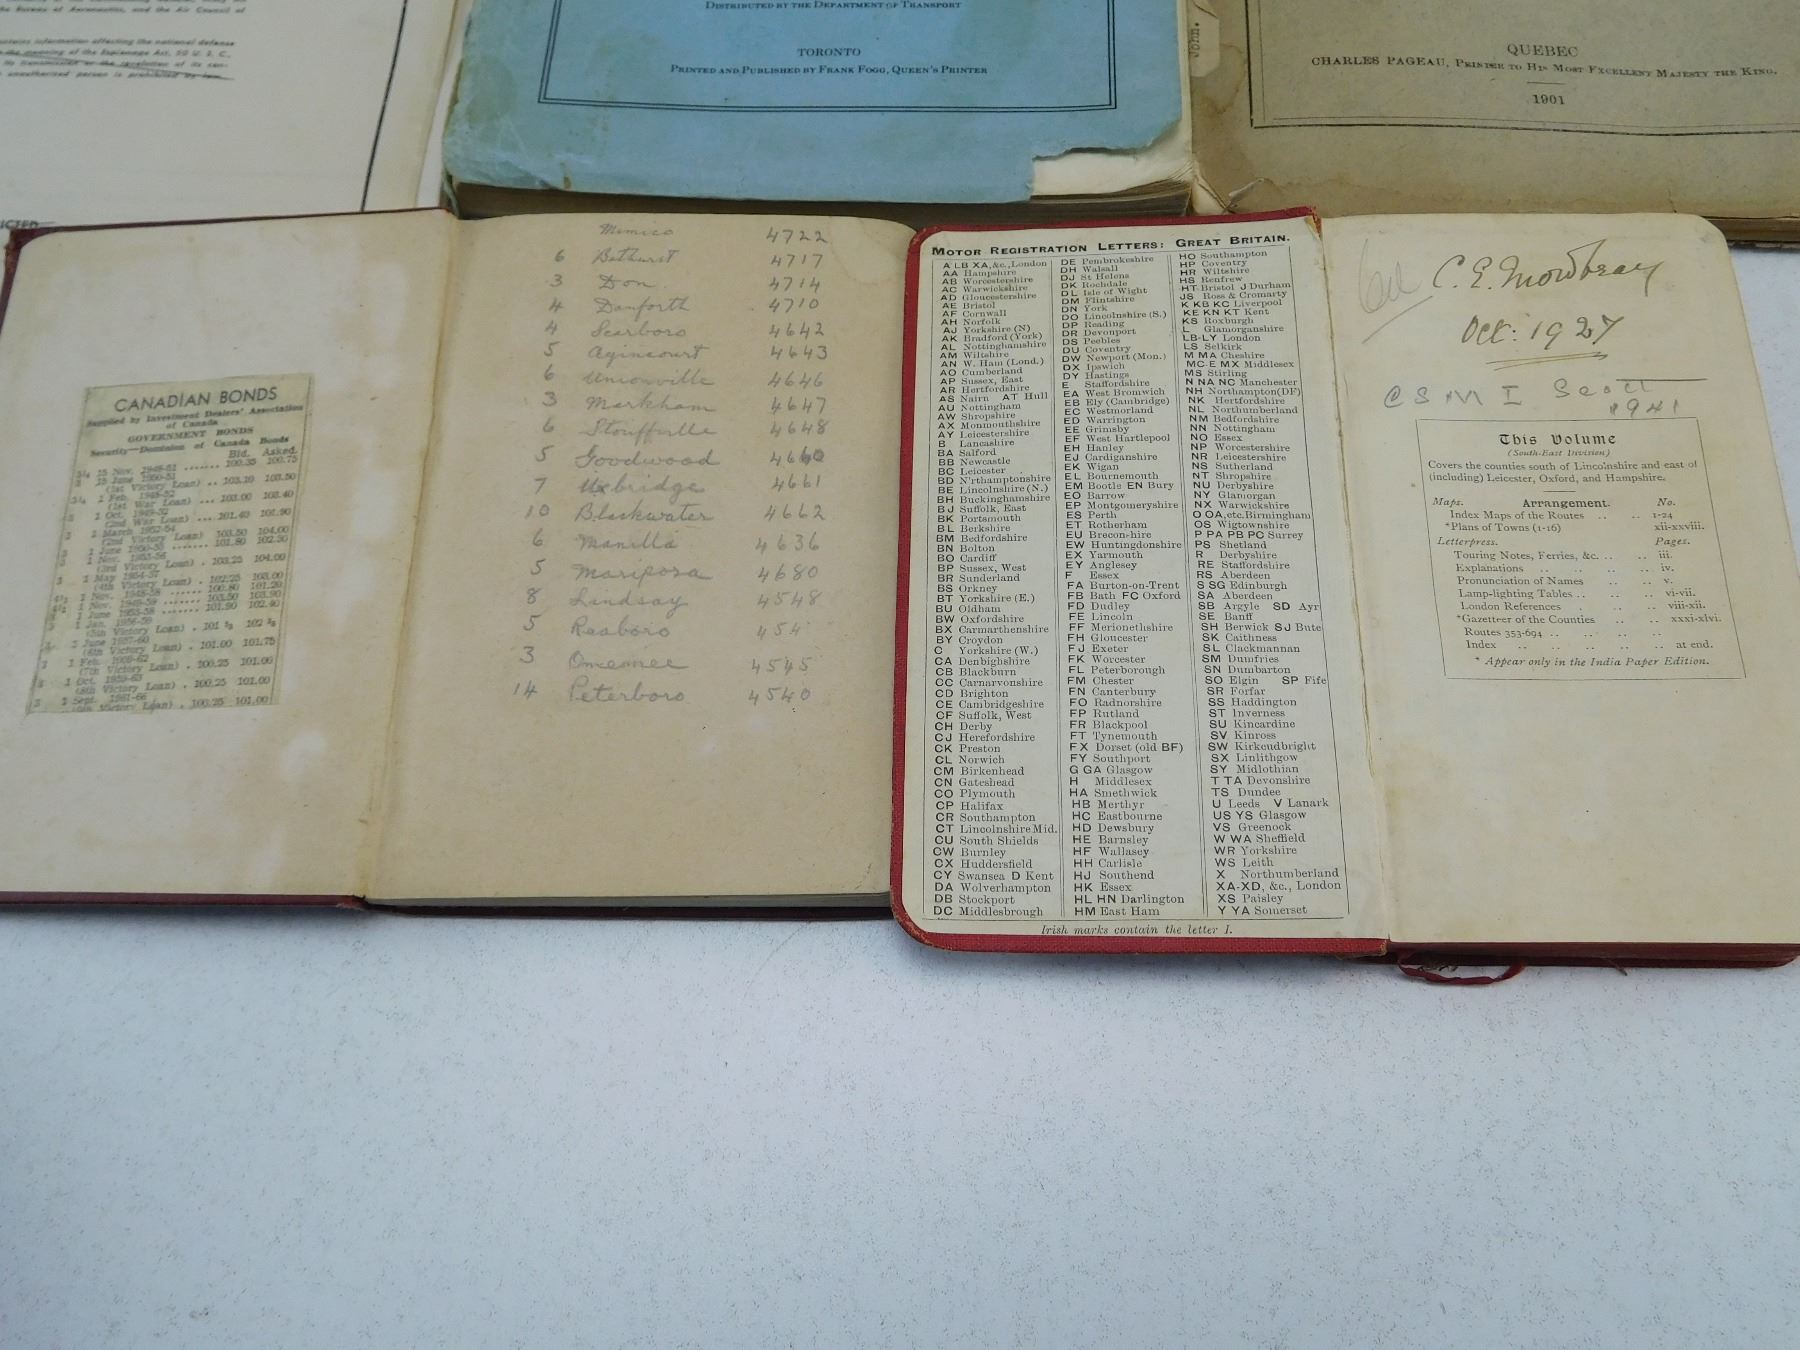 DISTRIBUTED BY THE DEPARTMENT OF TRANSPORT
TORONTO
PRINTED AND PUBLISHED BY FRANK FOGG, QUEEN'S PRINTER
John.
QUEBEC
CHARLES PAGEAU, PRINTER TO HIS MOST EXCELLENT MAJESTY THE KING.
1901
CANADIAN BONDS
Supplied by Investment Dealers' Association
of Canada
GOVERNMENT BONDS
Security—Dominion of Canada Bonds
Bid. Asked.
Mimico 4722
6 Bathurst 4717
3 Don 4714
4 Danforth 4710
4 Scarboro 4642
5 Agincourt 4643
6 Unionville 4646
3 Markham 4647
6 Stouffville 4648
5 Goodwood 4660
7 Uxbridge 4661
10 Blackwater 4662
6 Manilla 4636
5 Mariposa 4680
8 Lindsay 4548
5 Reaboro 454
3 Omemee 4545
14 Peterboro 4540
MOTOR REGISTRATION LETTERS: GREAT BRITAIN.
A LB XA,&c., London
AA Hampshire
AB Worcestershire
AC Warwickshire
AD Gloucestershire
AE Bristol
AF Cornwall
AH Norfolk
AJ Yorkshire (N)
AK Bradford (York)
AL Nottinghamshire
AM Wiltshire
AN W. Ham (Lond.)
AO Cumberland
AP Sussex, East
AR Hertfordshire
AS Nairn AT Hull
AU Nottingham
AW Shropshire
AX Monmouthshire
AY Leicestershire
B Lancashire
BA Salford
BB Newcastle
BC Leicester
BD N'rthamptonshire
BE Lincolnshire (N.)
BH Buckinghamshire
BJ Suffolk, East
BK Portsmouth
BL Berkshire
BM Bedfordshire
BN Bolton
BO Cardiff
BP Sussex, West
BR Sunderland
BS Orkney
BT Yorkshire (E.)
BU Oldham
BW Oxfordshire
BX Carmarthenshire
BY Croydon
C Yorkshire (W.)
CA Denbighshire
CB Blackburn
CC Carnarvonshire
CD Brighton
CE Cambridgeshire
CF Suffolk, West
CH Derby
CJ Herefordshire
CK Preston
CL Norwich
CM Birkenhead
CN Gateshead
CO Plymouth
CP Halifax
CR Southampton
CT Lincolnshire Mid.
CU South Shields
CW Burnley
CX Huddersfield
CY Swansea D Kent
DA Wolverhampton
DB Stockport
DC Middlesbrough
DE Pembrokeshire
DH Walsall
DJ St Helens
DK Rochdale
DL Isle of Wight
DM Flintshire
DN York
DO Lincolnshire (S.)
DP Reading
DR Devonport
DS Peebles
DU Coventry
DW Newport (Mon.)
DX Ipswich
DY Hastings
E Staffordshire
EA West Bromwich
EB Ely (Cambridge)
EC Westmorland
ED Warrington
EE Grimsby
EF West Hartlepool
EH Hanley
EJ Cardiganshire
EK Wigan
EL Bournemouth
EM Bootle EN Bury
EO Barrow
EP Montgomeryshire
ES Perth
ET Rotherham
EU Brecon-hire
EW Huntingdonshire
EX Yarmouth
EY Anglesey
F Essex
FA Burton-on-Trent
FB Bath FC Oxford
FD Dudley
FE Lincoln
FF Merionethshire
FH Gloucester
FJ Exeter
FK Worcester
FL Peterborough
FM Chester
FN Canterbury
FO Radnorshire
FP Rutland
FR Blackpool
FT Tynemouth
FX Dorset (old BF)
FY Southport
G GA Glasgow
H Middlesex
HA Smethwick
HB Merthyr
HC Eastbourne
HD Dewsbury
HE Barnsley
HF Wallasey
HH Carlisle
HJ Southend
HK Essex
HL HN Darlington
HM East Ham
HO Southampton
HP Coventry
HR Wiltshire
HS Renfrew
HT Bristol J Durham
JS Ross & Cromarty
K KB KC Liverpool
KE KN KT Kent
KS Roxburgh
L Glamorganshire
LB-LY London
LS Selkirk
M MA Cheshire
MC-E MX Middlesex
MS Stirling
N NA NC Manchester
NH Northampton(DF)
NK Hertfordshire
NL Northumberland
NM Bedfordshire
NN Nottingham
NO Essex
NP Worcestershire
NR Leicestershire
NS Sutherland
NT Shropshire
NU Derbyshire
NY Glamorgan
NX Warwickshire
O OA,etc.Birmingham
OS Wigtownshire
P PA PB PC Surrey
PS Shetland
R Derbyshire
RE Staffordshire
RS Aberdeen
S SG Edinburgh
SA Aberdeen
SB Argyle SD Ayr
SE Banff
SH Berwick SJ Bute
SK Caithness
SL Clackmannan
SM Dumfries
SN Dumbarton
SO Elgin SP Fife
SR Forfar
SS Haddington
ST Inverness
SU Kincardine
SV Kinross
SW Kirkcudbright
SX Linlithgow
SY Midlothian
T TA Devonshire
TS Dundee
U Leeds V Lanark
US YS Glasgow
VS Greenock
W WA Sheffield
WR Yorkshire
WS Leith
X Northumberland
XA-XD, &c., London
XS Paisley
Y YA Somerset
Irish marks contain the letter I.
C. E. Mowbray
Oct: 1927
CSM I Scott
1941
This Volume
(South-East Division)
Covers the counties south of Lincolnshire and east of
(including) Leicester, Oxford, and Hampshire.
Maps. Arrangement. No.
Index Maps of the Routes .. .. 1-24
*Plans of Towns (1-16) xii-xxviii.
Letterpress. Pages.
Touring Notes, Ferries, &c. .. .. iii.
Explanations .. .. .. .. iv.
Pronunciation of Names .. .. v.
Lamp-lighting Tables .. .. .. vi-vii.
London References .. .. viii-xii.
*Gazetteer of the Counties .. .. xxxi-xlvi.
Routes 353-694 .. .. .. ..
Index .. .. .. .. .. at end.
* Appear only in the India Paper Edition.